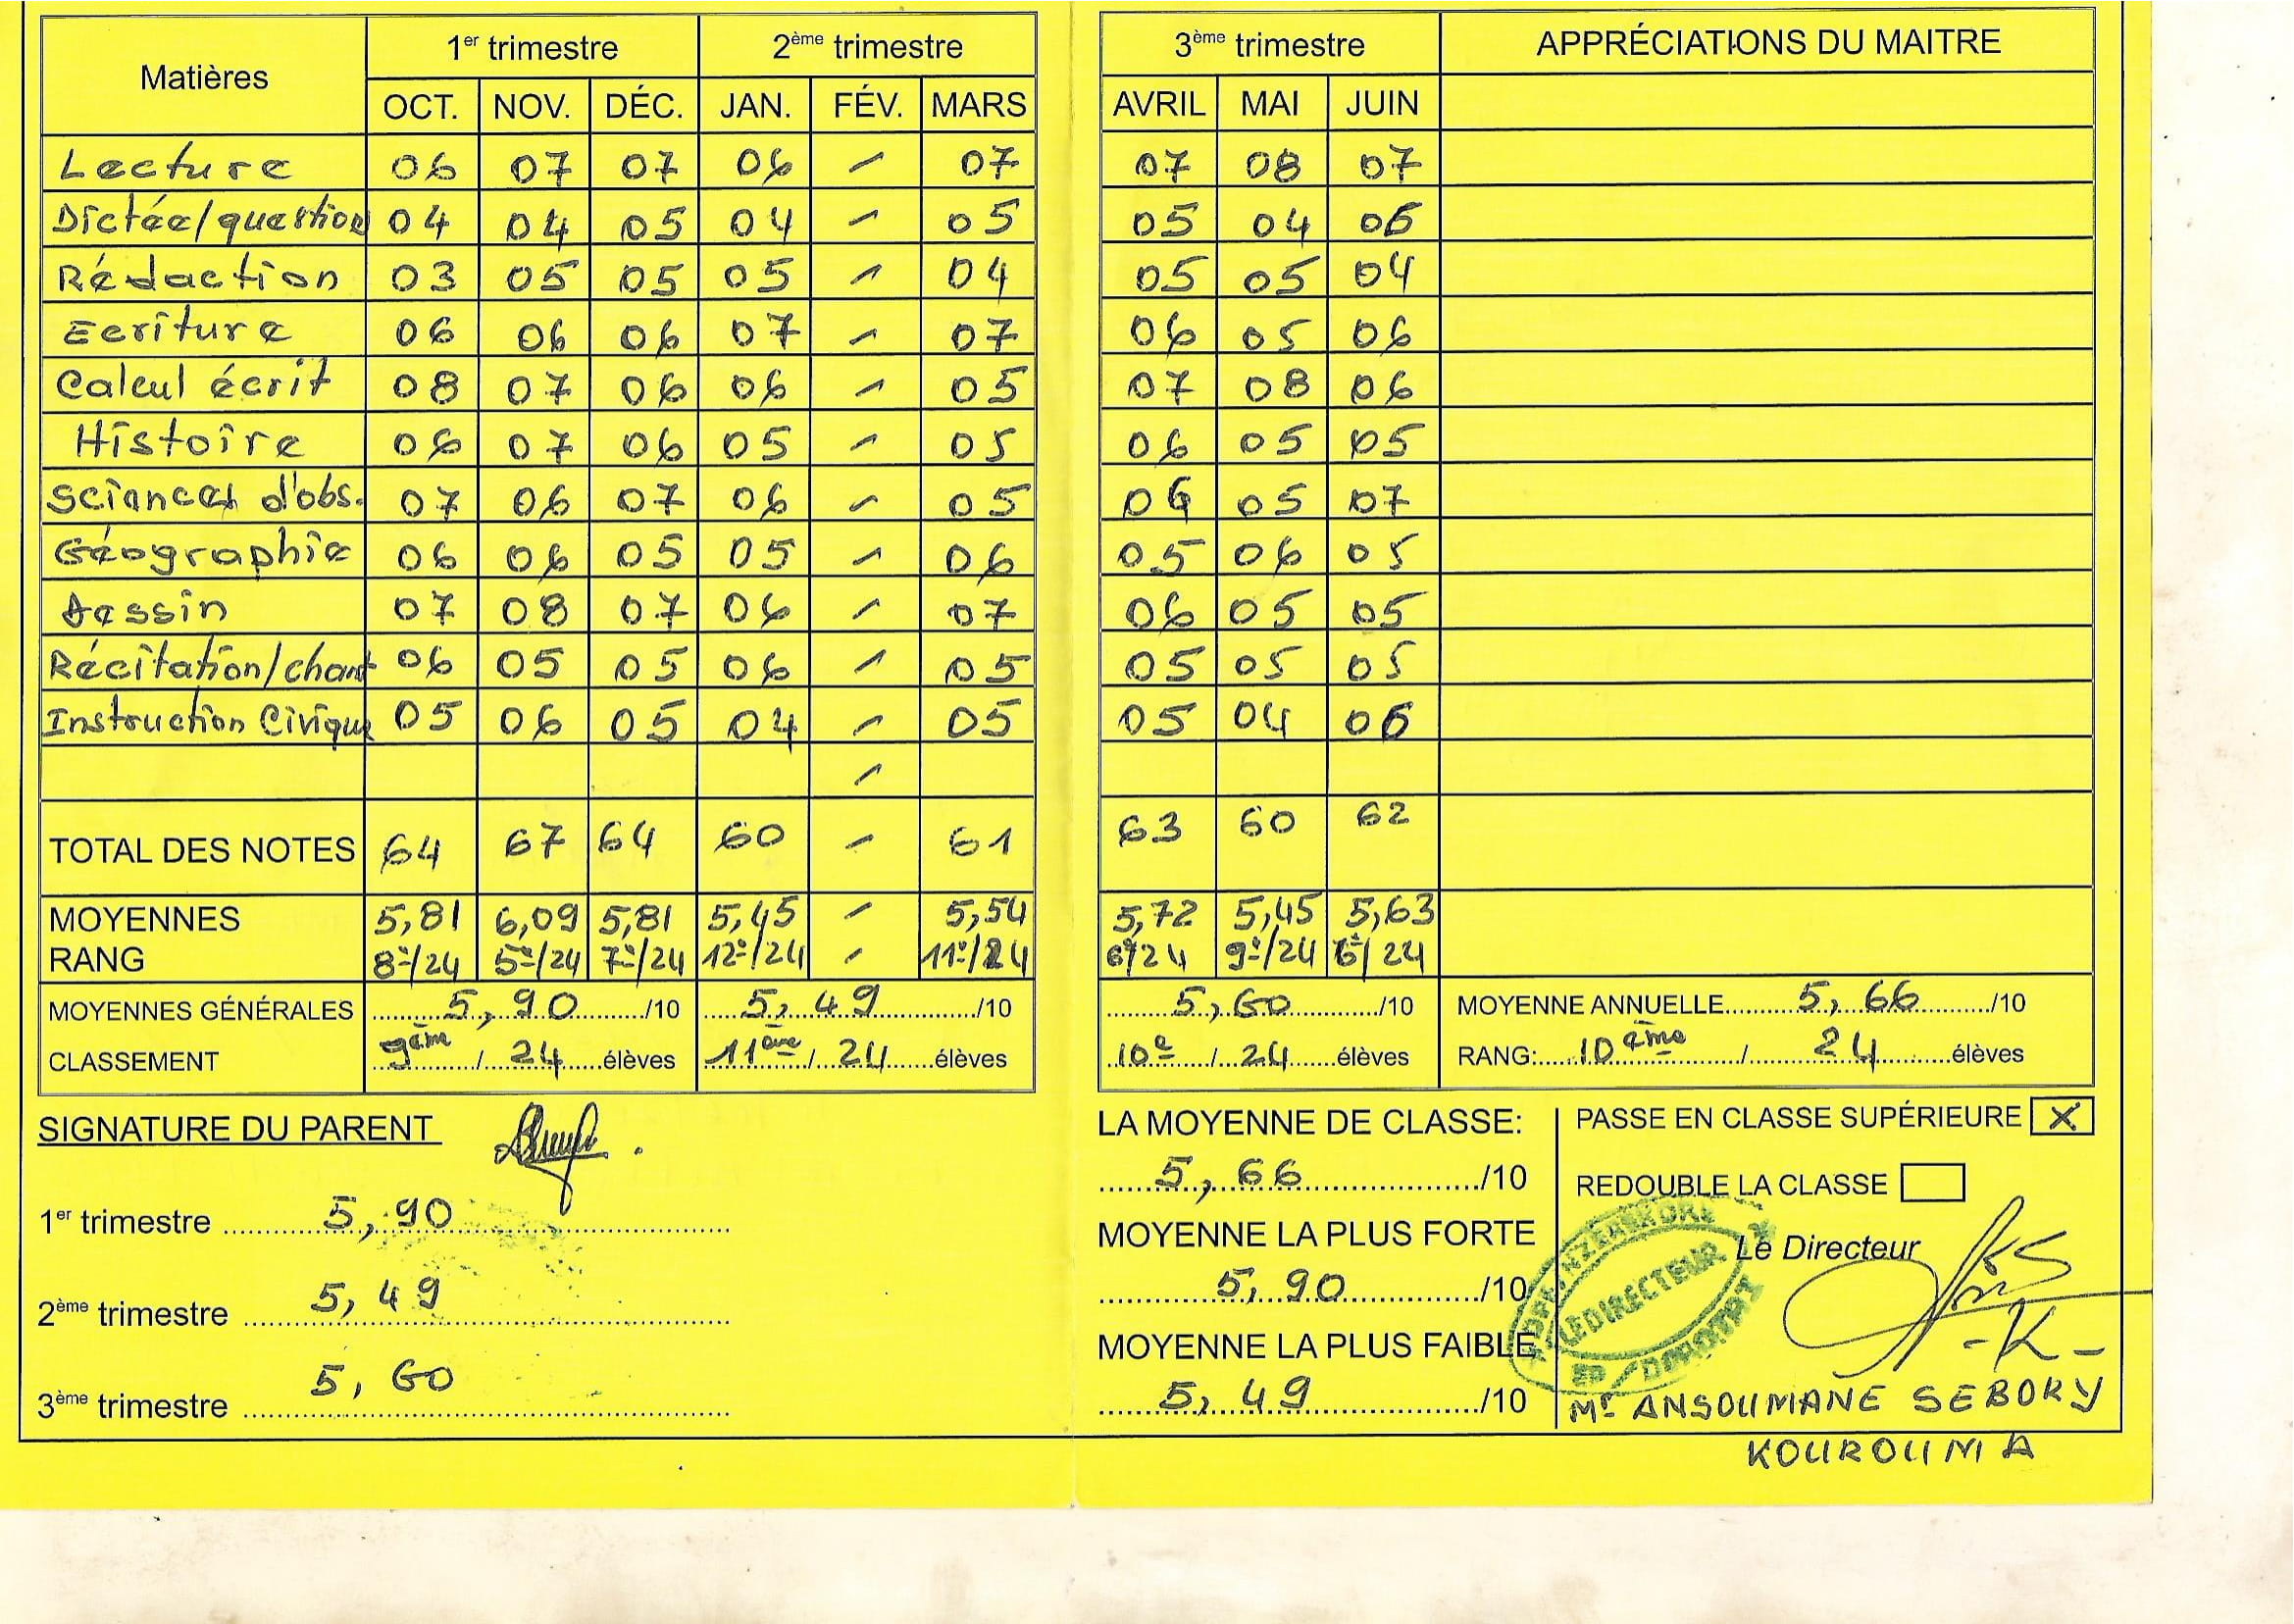 Matières 1er trimestre 2ème trimestre 3ème trimestre APPRÉCIATIONS DU MAITRE
OCT. NOV. DÉC. JAN. FÉV. MARS AVRIL MAI JUIN
Lecture 06 07 07 06 - 07 07 08 07
Dictée/question 04 04 05 04 - 05 05 04 06
Rédaction 03 05 05 05 - 04 05 05 04
Ecriture 06 06 06 07 - 07 06 05 06
Calcul écrit 08 07 06 06 - 05 07 08 06
Histoire 06 07 06 05 - 05 06 05 05
Sciences d'obs. 07 06 07 06 - 05 06 05 07
Géographie 06 06 05 05 - 06 05 06 05
dessin 07 08 07 06 - 07 06 05 05
Récitation/chant 06 05 05 06 - 05 05 05 05
Instruction Civique 05 06 05 04 - 05 05 04 06
-
TOTAL DES NOTES 64 67 64 60 - 61 63 60 62
MOYENNES 5,81 6,09 5,81 5,45 - 5,54 5,72 5,45 5,63
RANG 8e/24 5e/24 7e/24 12e/24 - 11e/24 6e/24 9e/24 6e/24
MOYENNES GÉNÉRALES 5,90 /10 5,49 /10 5,60 /10 MOYENNE ANNUELLE 5,66 /10
CLASSEMENT 9ème / 24 élèves 11ème / 24 élèves 10e / 24 élèves RANG: 10ème / 24 élèves
SIGNATURE DU PARENT
1er trimestre 5,90
2ème trimestre 5,49
3ème trimestre 5,60
LA MOYENNE DE CLASSE:
5,66 /10
MOYENNE LA PLUS FORTE
5,90 /10
MOYENNE LA PLUS FAIBLE
5,49 /10
PASSE EN CLASSE SUPÉRIEURE X
REDOUBLE LA CLASSE
Le Directeur
LE DIRECTEUR
-K-
Mr ANSOUMANE SEBORY
KOUROUMA